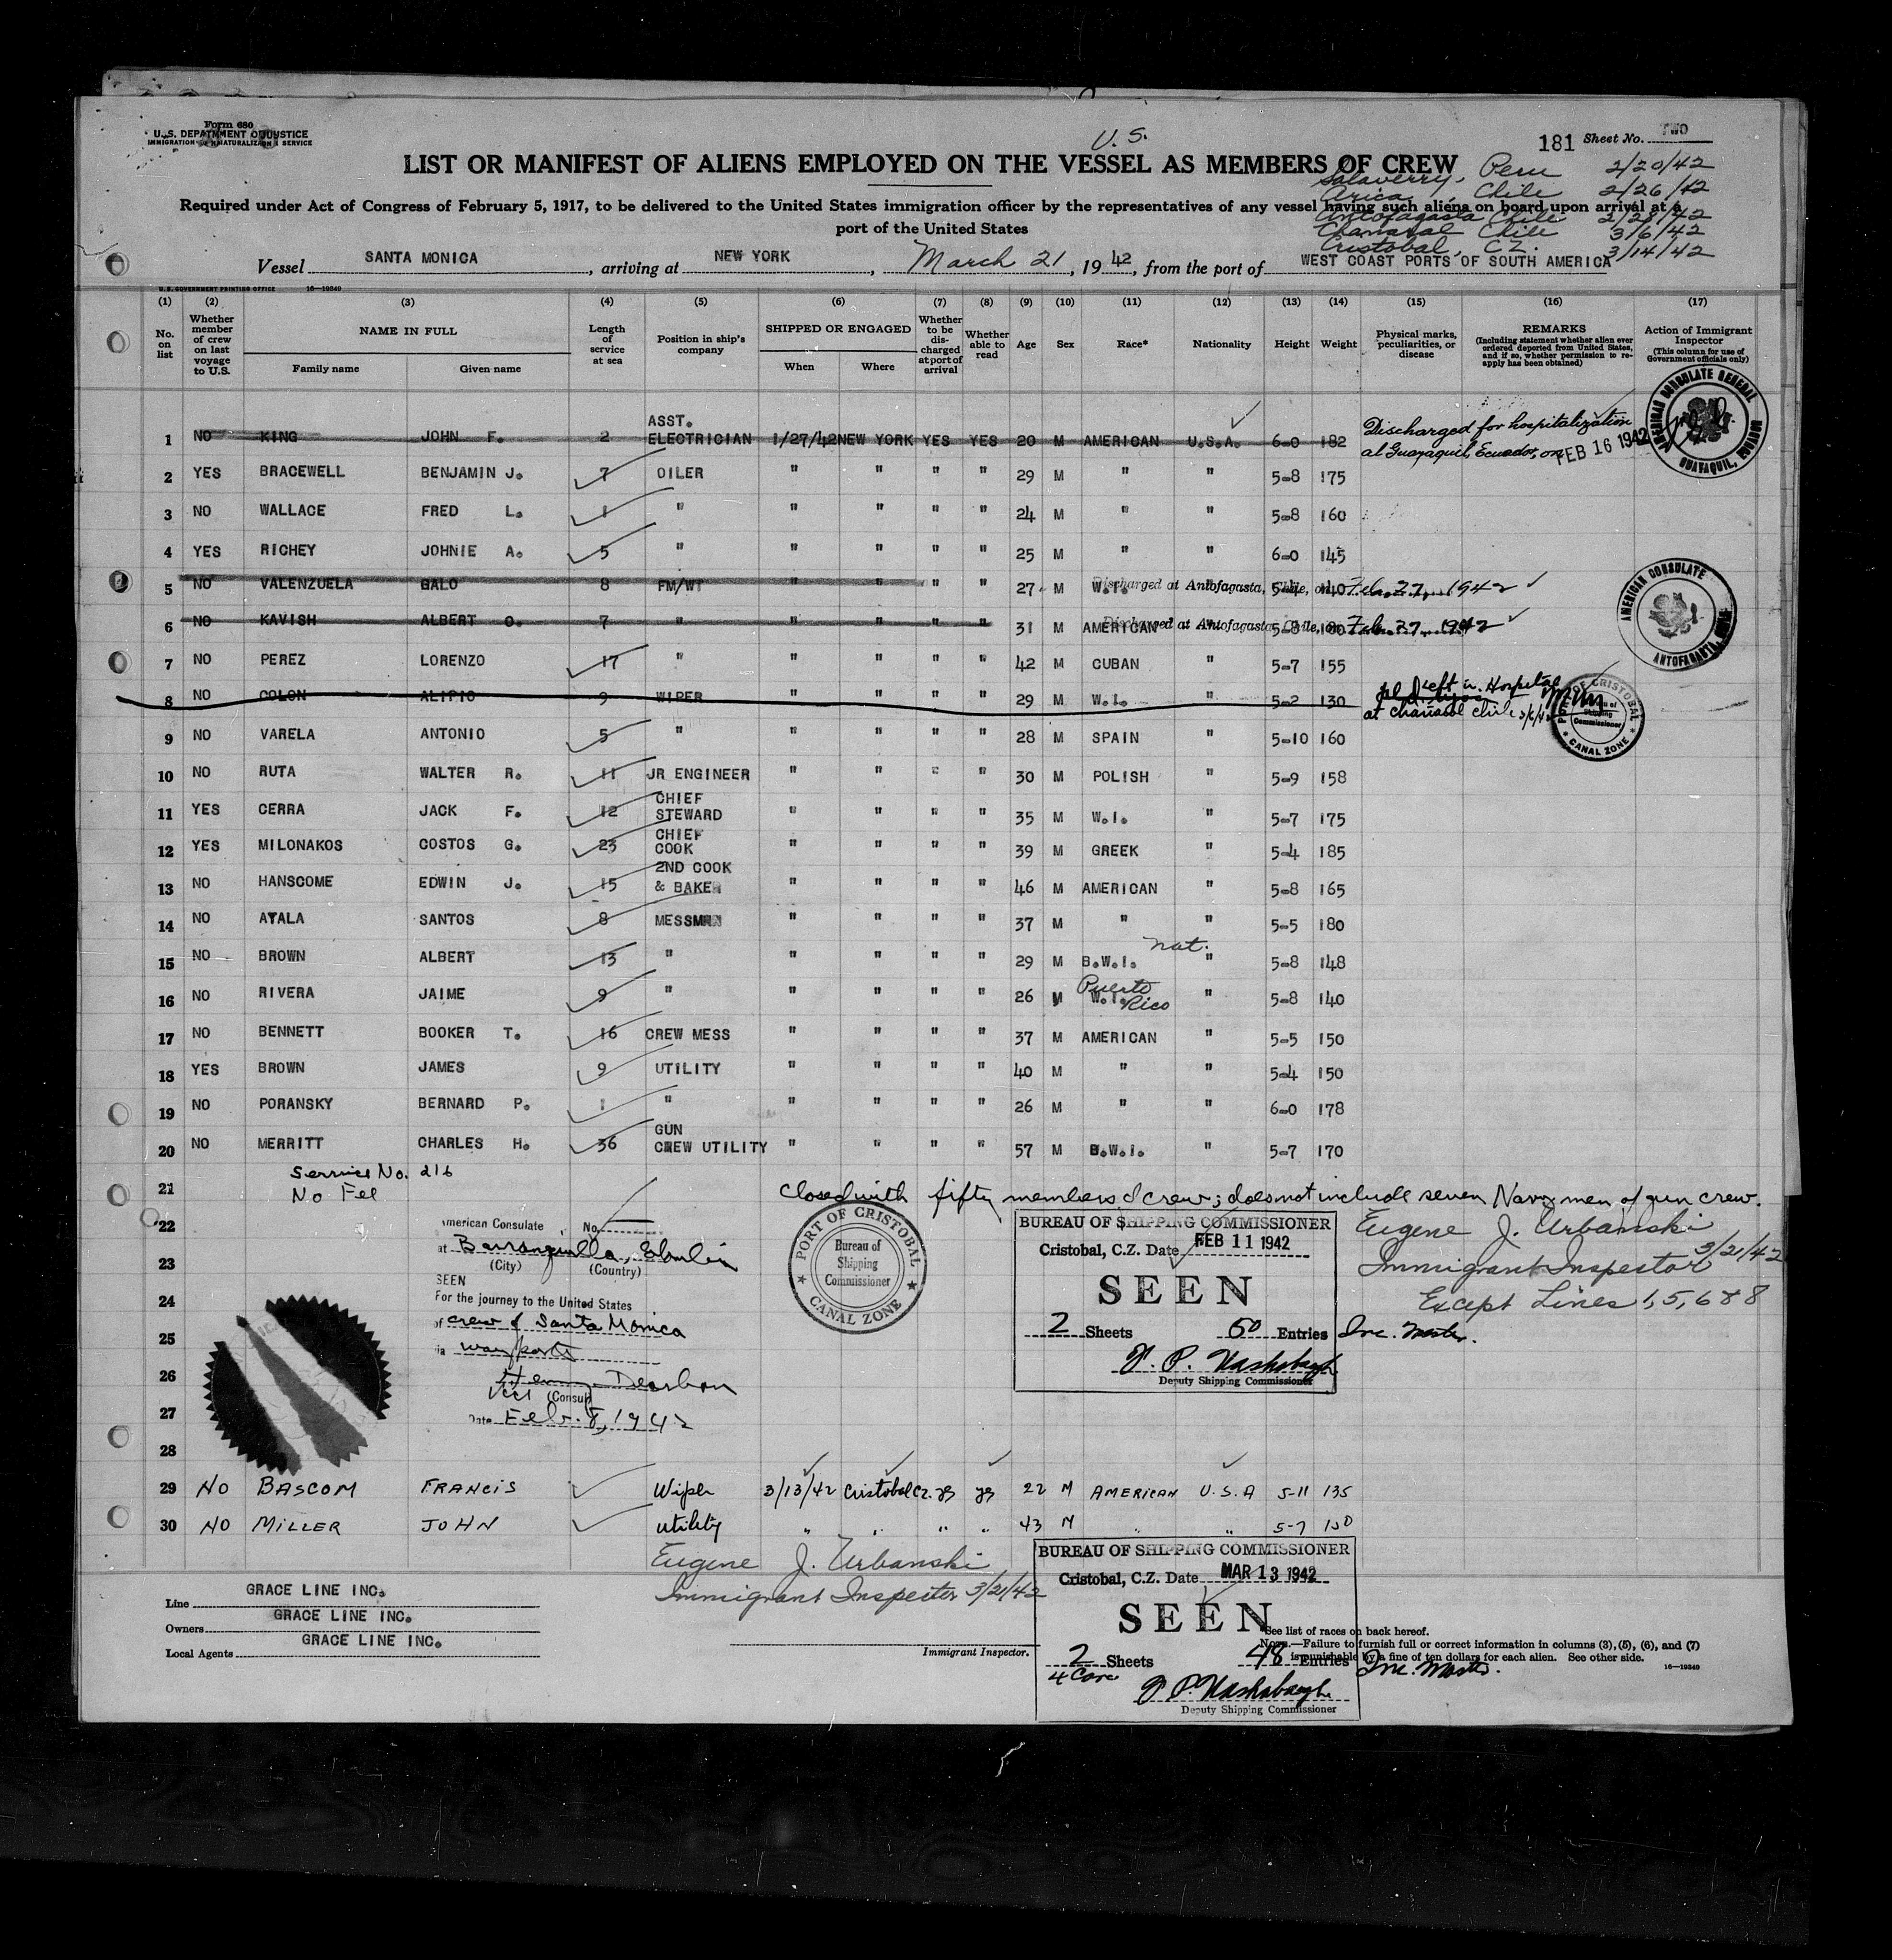 Form 680
U.S. DEPARTMENT OF JUSTICE
IMMIGRATION & NATURALIZATION SERVICE
U.S.
181 Sheet No. TWO
LIST OR MANIFEST OF ALIENS EMPLOYED ON THE VESSEL AS MEMBERS OF CREW
Salaverry, Peru 2/20/42
Arica, Chile 2/26/42
Required under Act of Congress of February 5, 1917, to be delivered to the United States immigration officer by the representatives of any vessel having such aliens on board upon arrival at a
port of the United States
Antofagasta Chile 2/28/42
Chanaral Chile 3/6/42
Cristobal, C.Z. 3/14/42
Vessel SANTA MONICA, arriving at NEW YORK, March 21, 1942, from the port of WEST COAST PORTS OF SOUTH AMERICA
U.S. GOVERNMENT PRINTING OFFICE 16—19349
(1) (2) (3) (4) (5) (6) (7) (8) (9) (10) (11) (12) (13) (14) (15) (16) (17)
No. on list
Whether member of crew on last voyage to U.S.
NAME IN FULL
Family name Given name
Length of service at sea
Position in ship's company
SHIPPED OR ENGAGED
When Where
Whether to be discharged at port of arrival
Whether able to read
Age
Sex
Race*
Nationality
Height
Weight
Physical marks, peculiarities, or disease
REMARKS
(Including statement whether alien ever ordered deported from United States, and if so, whether permission to reapply has been obtained)
Action of Immigrant Inspector
(This column for use of Government officials only)
1 NO KING JOHN F. 2 ASST. ELECTRICIAN 1/27/42 NEW YORK YES YES 20 M AMERICAN U.S.A. 6-0 182 Discharged for hospitalization
at Guayaquil, Ecuador, on FEB 16 1942
AMERICAN CONSULATE GENERAL GUAYAQUIL, ECUADOR
2 YES BRACEWELL BENJAMIN J. 7 OILER " " " " 29 M " " 5-8 175
3 NO WALLACE FRED L. 1 " " " " " 24 M " " 5-8 160
4 YES RICHEY JOHNIE A. 5 " " " " " 25 M " " 6-0 145
5 NO VALENZUELA GALO 8 FM/WT " " " " 27 M W.I. " 5-4 140 Discharged at Antofagasta, Chile, on Feb. 27, 1942
6 NO KAVISH ALBERT O. 7 " " " " " 31 M AMERICAN " 5-8 180 Discharged at Antofagasta, Chile, on Feb. 27, 1942
AMERICAN CONSULATE ANTOFAGASTA, CHILE
7 NO PEREZ LORENZO 17 " " " " " 42 M CUBAN " 5-7 155
8 NO COLON ALIPIO 9 WIPER " " " " 29 M W.I. " 5-2 130 Left in Hospital
at Chanaral Chile 3/6/42
PORT OF CRISTOBAL Bureau of Shipping Commissioner CANAL ZONE
9 NO VARELA ANTONIO 5 " " " " " 28 M SPAIN " 5-10 160
10 NO RUTA WALTER R. 11 JR ENGINEER " " " " 30 M POLISH " 5-9 158
11 YES CERRA JACK F. 12 CHIEF STEWARD " " " " 35 M W.I. " 5-7 175
12 YES MILONAKOS COSTOS G. 23 CHIEF COOK " " " " 39 M GREEK " 5-4 185
13 NO HANSCOME EDWIN J. 15 2ND COOK & BAKER " " " " 46 M AMERICAN " 5-8 165
14 NO AYALA SANTOS 8 MESSMAN " " " " 37 M " " 5-5 180
15 NO BROWN ALBERT 13 " " " " " 29 M B.W.I. nat. " 5-8 148
16 NO RIVERA JAIME 9 " " " " " 26 M W.I. Puerto Rico " 5-8 140
17 NO BENNETT BOOKER T. 16 CREW MESS " " " " 37 M AMERICAN " 5-5 150
18 YES BROWN JAMES 9 UTILITY " " " " 40 M " " 5-4 150
19 NO PORANSKY BERNARD P. 1 " " " " " 26 M " " 6-0 178
20 NO MERRITT CHARLES H. 36 GUN CREW UTILITY " " " " 57 M B.W.I. " 5-7 170
Service No. 216
21 No Fee
Closed with fifty members of crew; does not include seven Navy men of gun crew.
22
American Consulate No.
at Barranquilla, Colombia
23
(City) (Country)
SEEN
24
For the journey to the United States
of crew of Santa Monica
25
via way ports
26
Henry Dearborn
Vice (Consul)
27
Date Feb. 8, 1942
PORT OF CRISTOBAL Bureau of Shipping Commissioner CANAL ZONE
BUREAU OF SHIPPING COMMISSIONER
Cristobal, C.Z. Date FEB 11 1942
SEEN
2 Sheets 50 Entries Inc. Master.
Deputy Shipping Commissioner
Eugene J. Urbanski
Immigrant Inspector 3/21/42
Except Lines 1, 5, 6 & 8
28
29 NO BASCOM FRANCIS Wiper 3/13/42 Cristobal CZ. yes yes 22 M AMERICAN U.S.A 5-11 135
30 NO MILLER JOHN Utility " " " " 43 M " " 5-7 150
Eugene J. Urbanski
Immigrant Inspector 3/21/42
BUREAU OF SHIPPING COMMISSIONER
Cristobal, C.Z. Date MAR 13 1942
SEEN
2 Sheets 48 Entries Inc. Master.
Deputy Shipping Commissioner
Line GRACE LINE INC.
Owners GRACE LINE INC.
Local Agents GRACE LINE INC.
Immigrant Inspector.
See list of races on back hereof.
NOTE.—Failure to furnish full or correct information in columns (3), (5), (6), and (7)
is punishable by a fine of ten dollars for each alien. See other side.
16—19349